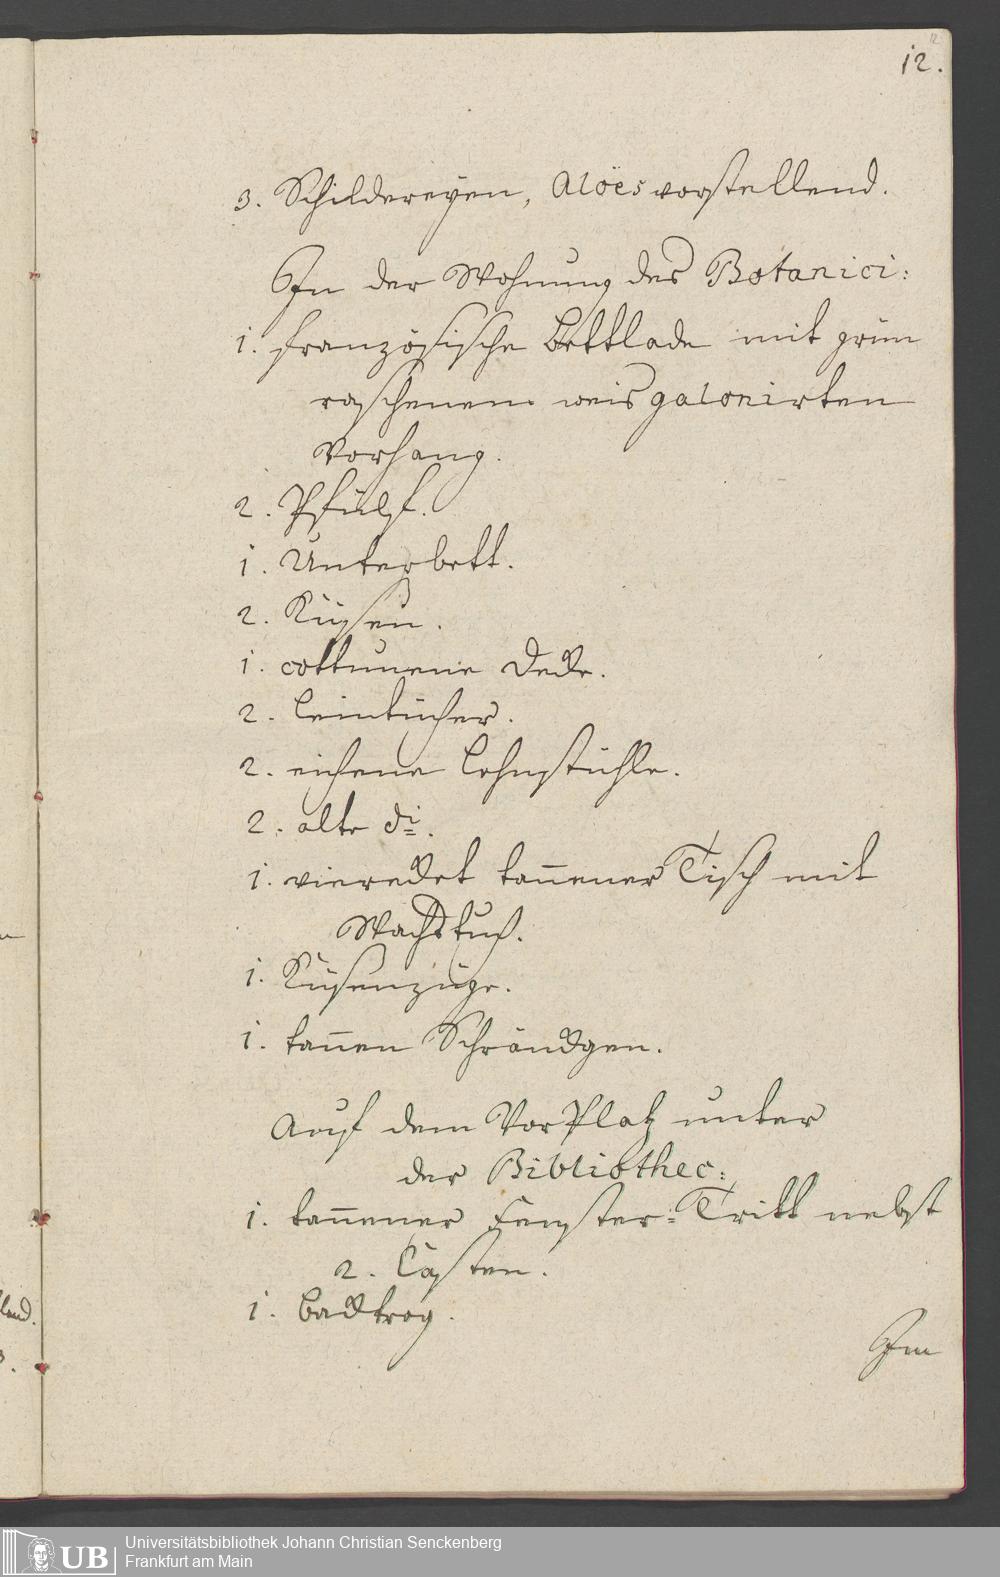 12.
3. Schildereyen, Aloës vorstellend.
In der Wohnung des Botanici:
1. französische Bettlade mit grün
raschenem weis galonirten
Vorhang.
2. Pfülf.
1. Unterbett.
2. Küßen.
1. cottunene Decke.
2. Leintücher.
2. eichene Lehnstühle.
2. alte do.
1. viereckt tañener Tisch mit
Wachstuch.
1. Küßenzüge.
1. tañen Schränckgen.
Auf dem Vor Platz unter
der Bibliothec:
1. tañener Fenster-Tritt nebst
2. Casten.
1. Backtrog.
Im
land.
3.
UB
Universitätsbibliothek Johann Christian Senckenberg
Frankfurt am Main